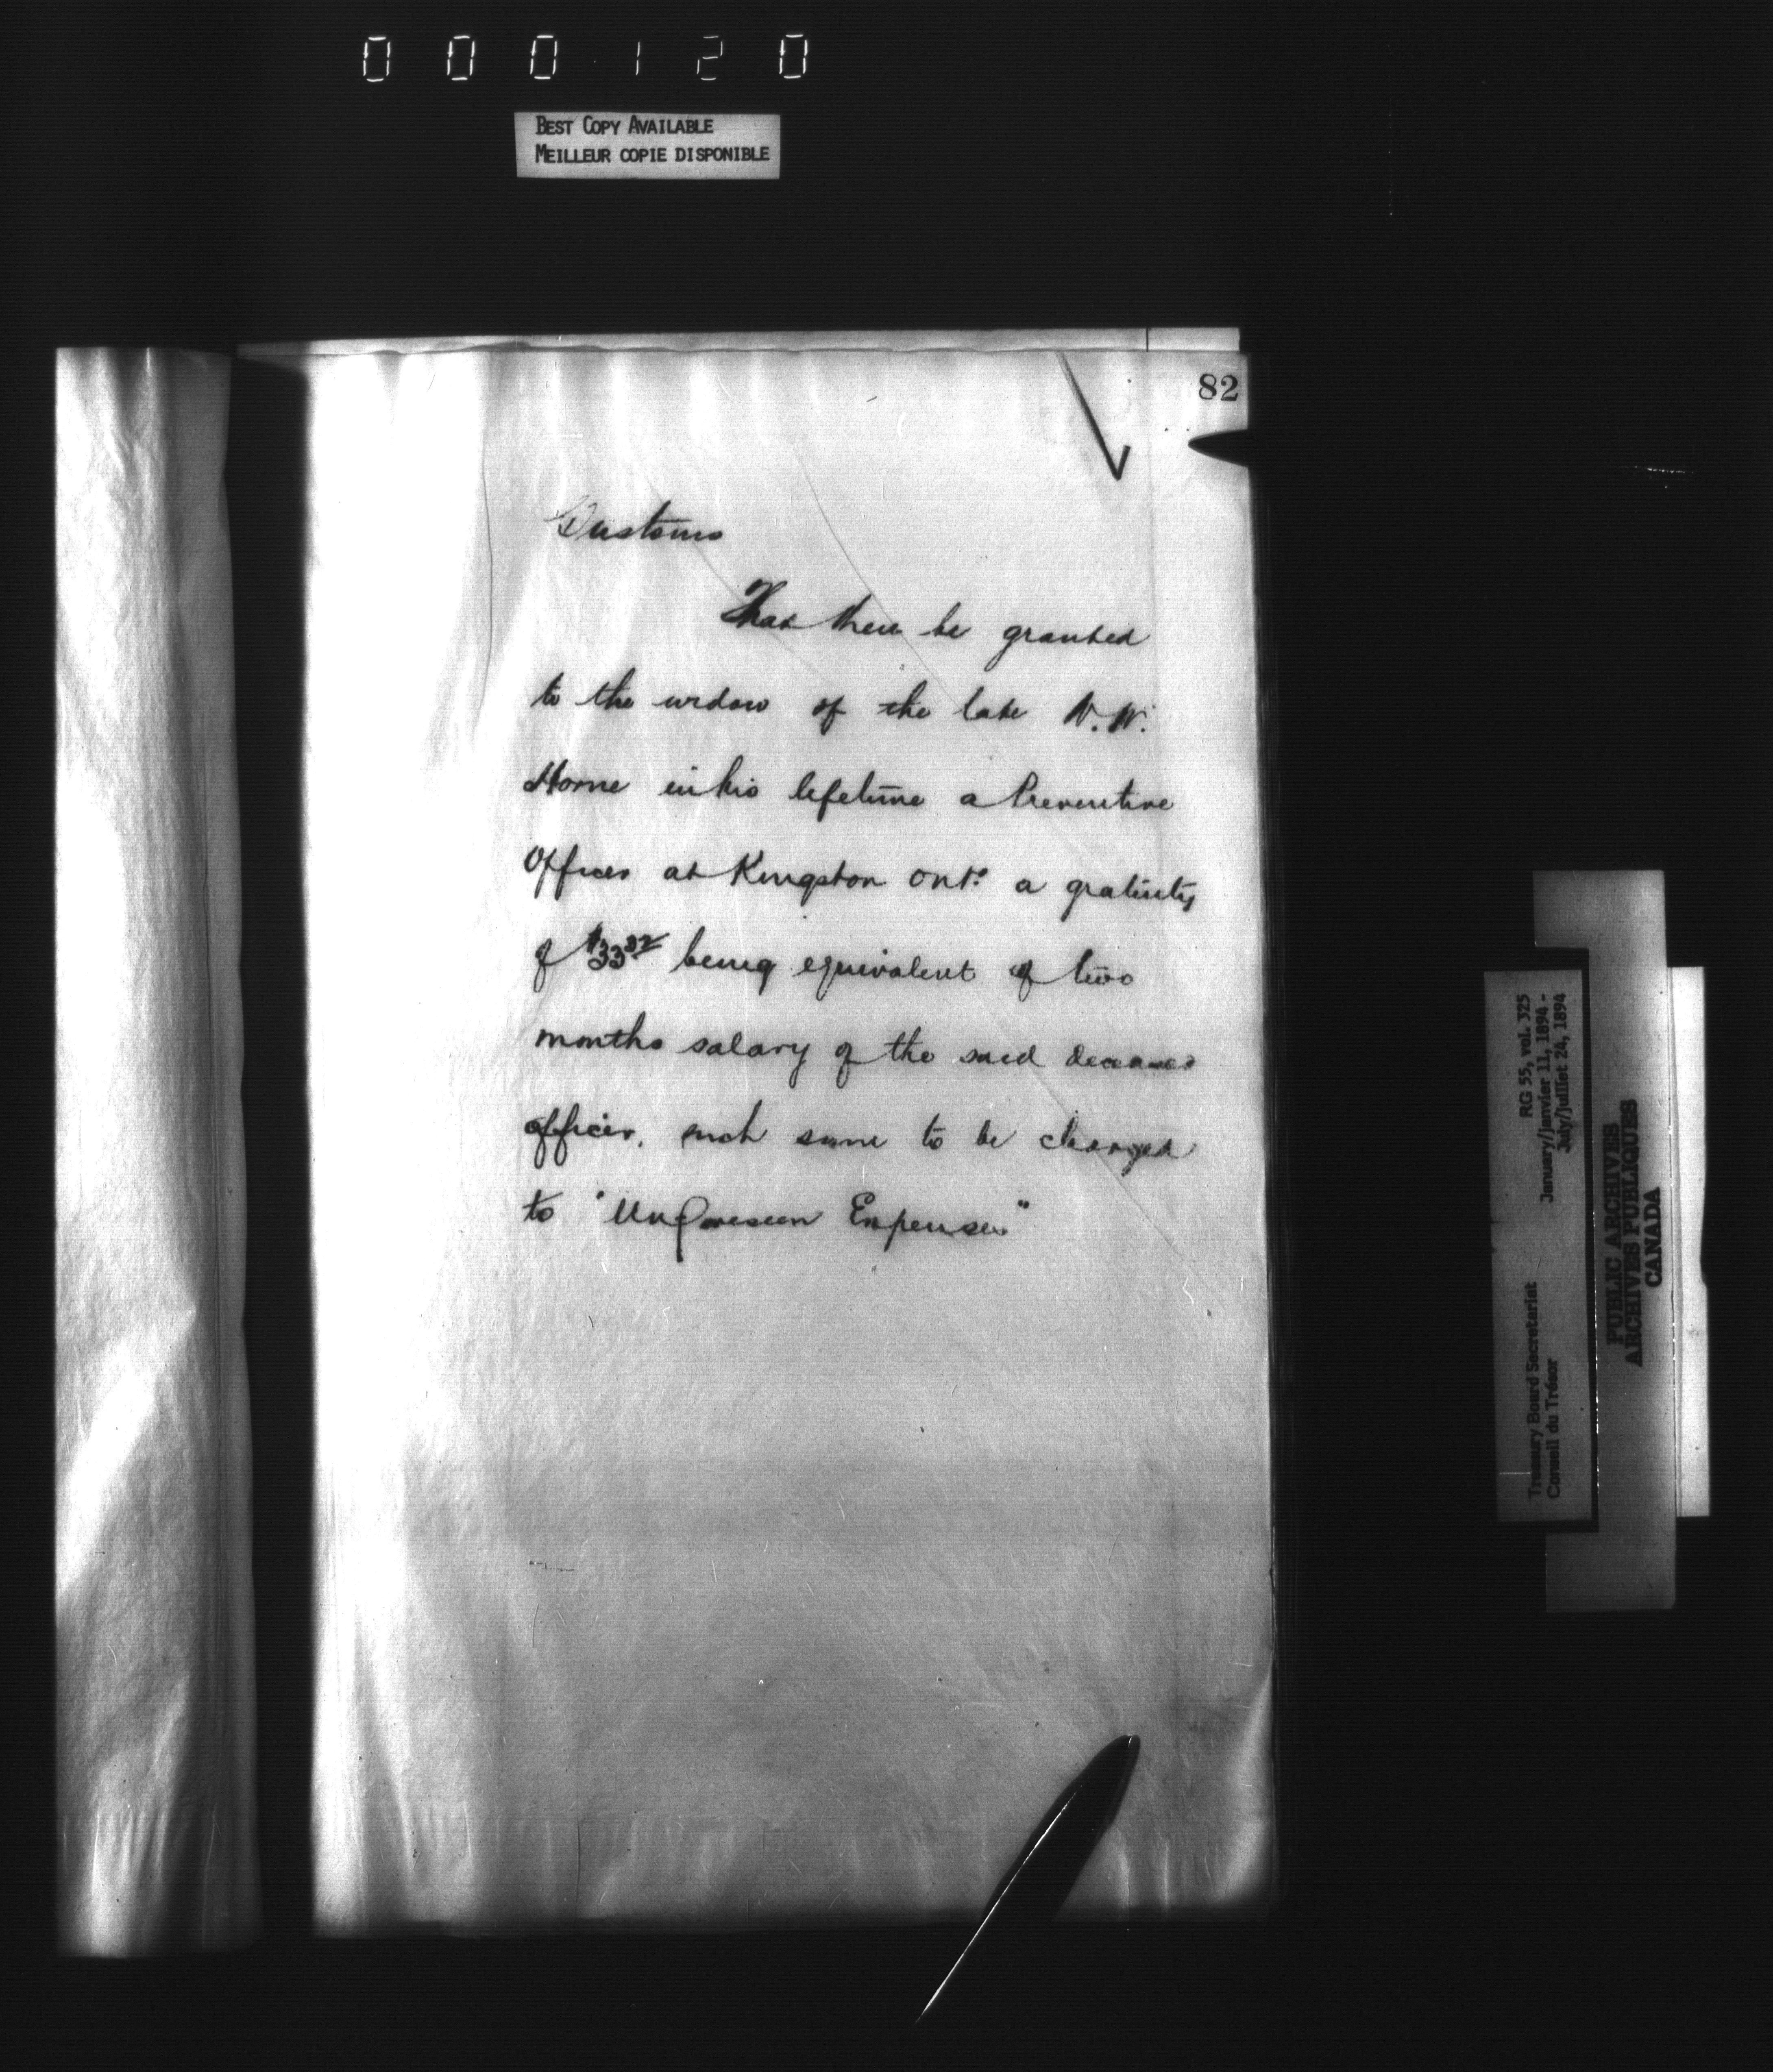 000120
BEST COPY AVAILABLE
MEILLEUR COPIE DISPONIBLE
82
Customs
That there be granted
to the widow of the late W. W.
Horne in his lifetime a Preventive
Officer at Kingston Ont. a gratuity
of $33 32 being equivalent of two
months salary of the said deceased
officer, such sum to be charged
to "Unforeseen Expenses"
Treasury Board Secretariat RG 55, vol. 325
Conseil du Trésor January/janvier 11, 1894 -
July/juillet 24, 1894
PUBLIC ARCHIVES
ARCHIVES PUBLIQUES
CANADA